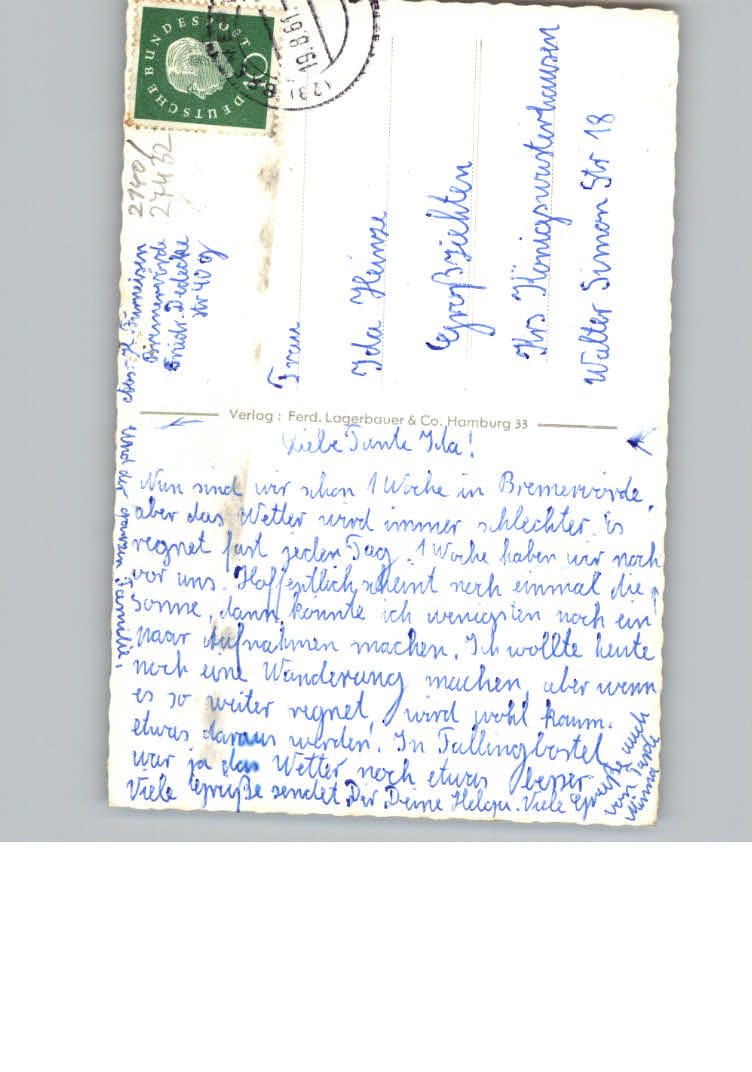 DEUTSCHE BUNDESPOST
16.8.61
2140/
27432
Abs: H.
Bremervörde
Friedr. Dedecke
Str 40 g
Frau
Ida Heinze
Großziehten
Krs Königswusterhausen
Walter Simon Str 18
Verlag: Ferd. Lagerbauer & Co. Hamburg 33
Liebe Tante Ida!
Nun sind wir schon 1 Woche in Bremervörde,
aber das Wetter wird immer schlechter. Es
regnet fast jeden Tag. 1 Woche haben wir noch
vor uns. Hoffentlich scheint noch einmal die
Sonne, dann könnte ich wenigsten noch ein
paar Aufnahmen machen. Ich wollte heute
noch eine Wanderung machen, aber wenn
es so weiter regnet, wird wohl kaum
etwas daraus werden. In Fallingbostel
war ja das Wetter noch etwas besser.
Viele Grüße sendet Dir Deine Helga. Viele Grüße auch
von Tante
Minna
und der ganzen Familie.